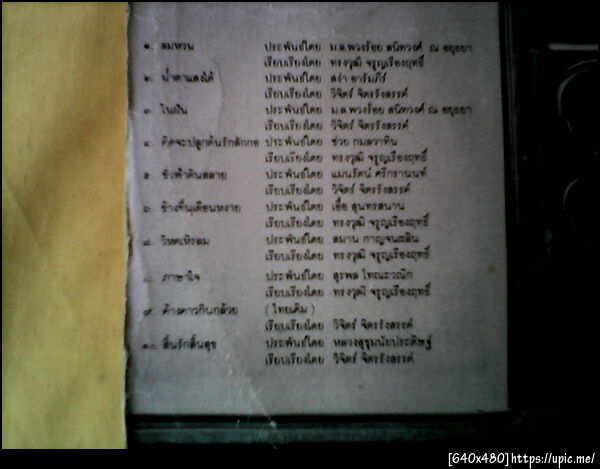 ๑. ลมหวน ประพันธ์โดย ม.ล.พวงร้อย สนิทวงศ์ ณ อยุธยา
เรียบเรียงโดย ทรงวุฒิ จรูญเรืองฤทธิ์
๒. น้ำตาแสงใต้ ประพันธ์โดย สง่า อารัมภีร์
เรียบเรียงโดย วิจิตร์ จิตรรังสรรค์
๓. ในฝัน ประพันธ์โดย ม.ล.พวงร้อย สนิทวงศ์ ณ อยุธยา
เรียบเรียงโดย วิจิตร์ จิตรรังสรรค์
๔. คิดจะปลูกต้นรักสักกอ ประพันธ์โดย ช่วย กมลวาทิน
เรียบเรียงโดย ทรงวุฒิ จรูญเรืองฤทธิ์
๕. ชั่วฟ้าดินสลาย ประพันธ์โดย แมนรัตน์ ศรีกรานนท์
เรียบเรียงโดย วิจิตร์ จิตรรังสรรค์
๖. ข้างขึ้นเดือนหงาย ประพันธ์โดย เอื้อ สุนทรสนาน
เรียบเรียงโดย ทรงวุฒิ จรูญเรืองฤทธิ์
วิหคเหิรลม ประพันธ์โดย สมาน กาญจนะผลิน
เรียบเรียงโดย ทรงวุฒิ จรูญเรืองฤทธิ์
ภาษาใจ ประพันธ์โดย สุรพล โทณะวณิก
เรียบเรียงโดย ทรงวุฒิ จรูญเรืองฤทธิ์
๙. ค้างคาวกินกล้วย ( ไทยเดิม )
เรียบเรียงโดย วิจิตร์ จิตรรังสรรค์
๑๐. สิ้นรักสิ้นสุข ประพันธ์โดย หลวงสุขุมนัยประดิษฐ์
เรียบเรียงโดย วิจิตร์ จิตรรังสรรค์
[640x480]https://upic.me/